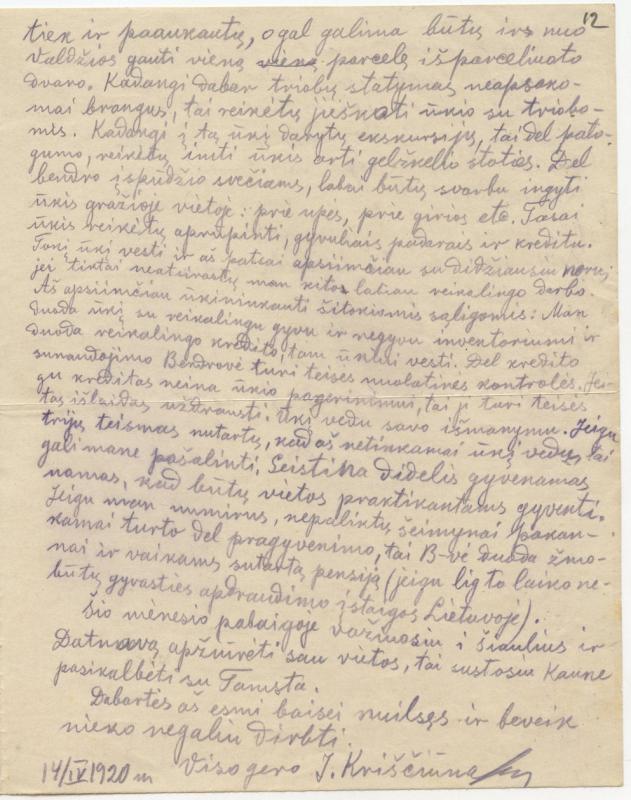 12
tiek ir paaukautų, o gal galima būtų irs nuo
Valdžios gauti vieną vieną parcelę išparceliuoto
dvaro. Kadangi dabar triobų statymas neapsako-
mai brangus, tai reikėtų jieškoti ūkio su triobo-
mis. Kadangi į tą ūkį darytų ekskursijų, tai del pato-
gumo, reikėtų imti ūkis arti gelžkelio stoties. Del
bendro įspūdžio svečiams, labai būtų svarbu ingyti
ūkis gražioje vietoje: prie upės, prie girios etc. Tasai
ūkis reikėtų aprūpinti, gyvuliais padarais ir kreditu.
Tonį ūkį vesti ir aš patsai apsiimčiau su didžiausiu noru,
jei tiktai neatsirastų man kitos labiau reikalingo darbo.
Aš apsiimčiau ūkininkauti šitokiomis sąligomis: Man
duoda ūkį su reikalingu gyvu ir negyvu inventoriumi ir
duoda reikalingo kredito, tam ūkiui vesti. Del kredito
sunaudojimo Bendrovė turi teisės nuolatinės kontrolės. Jei-
gu kreditas neina ūkio pagerinimui, tai ji turi teisės
tas išlaidas uždrausti. Ūkį vedu savo išmanymu. Jeigu
trijų teismas nutartų, kad aš netinkamai ūkį vedu, tai
gali mane pašalinti. Geistina didelis gyvenamas
namas, kad būtų vietos praktikantams gyventi.
Jeigu man numirus, nepaliktų šeimynai pakan-
kamai turto del pragyvenimo, tai B-vė duoda žmo-
nai ir vaikams sutartą pensiją (jeigu lig to laiko ne-
būtų gyvasties apdraudimo įstaigos Lietuvoje).
Šio mėnesio pabaigoje važiuosiu į Šiaulius ir
Datnavą apžiūrėti sau vietos, tai sustosiu Kaune
pasikalbėti su Tamsta.
Dabartės aš esmi baisei nuilsęs ir beveik
nieko negaliu dirbti.
14/IV 1920 m Viso gero J. Kriščiūnas